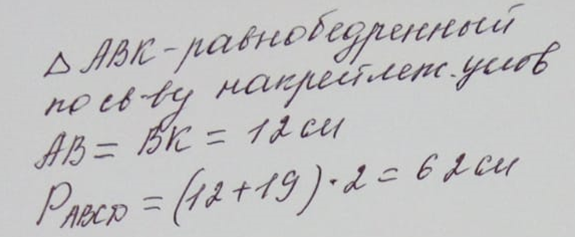 △ ABK - равнобедренный
по св-ву накрейтлеж. углов
AB = BK = 12 см
P_ABCD = (12+19)·2 = 62 см